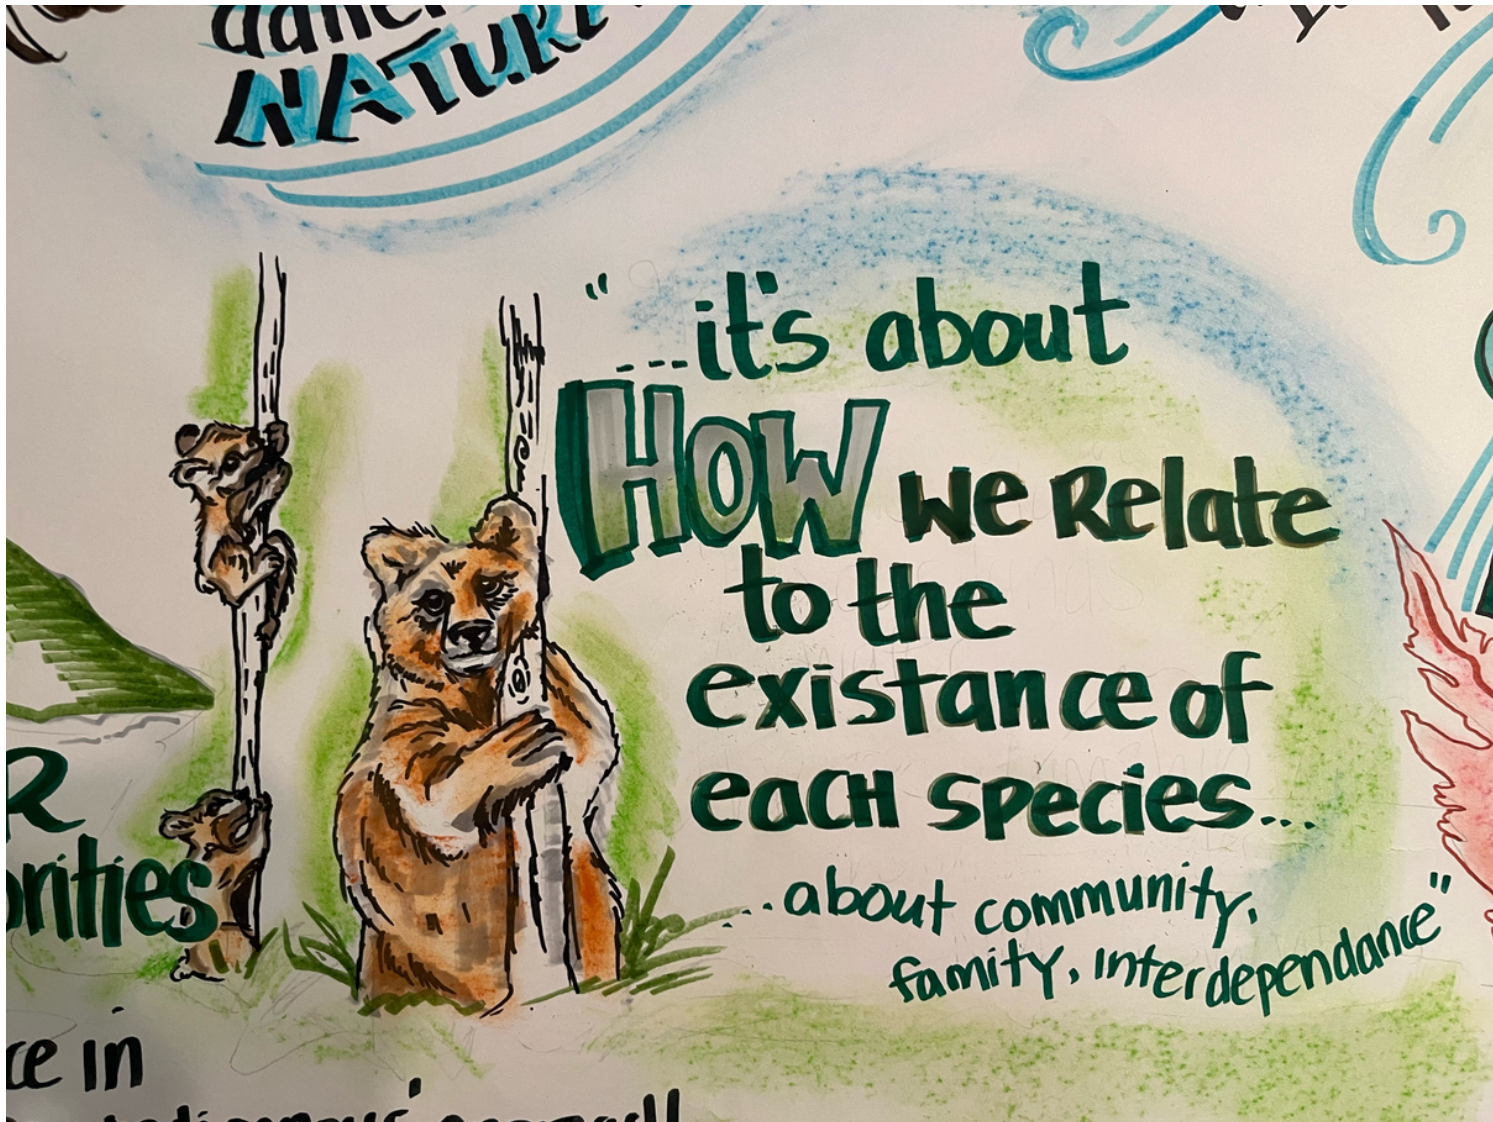 NATURE
"
...it's about
HOW we Relate
to the
existance of
each species...
...about community,
famity, interdependance"
R
orities
ce in